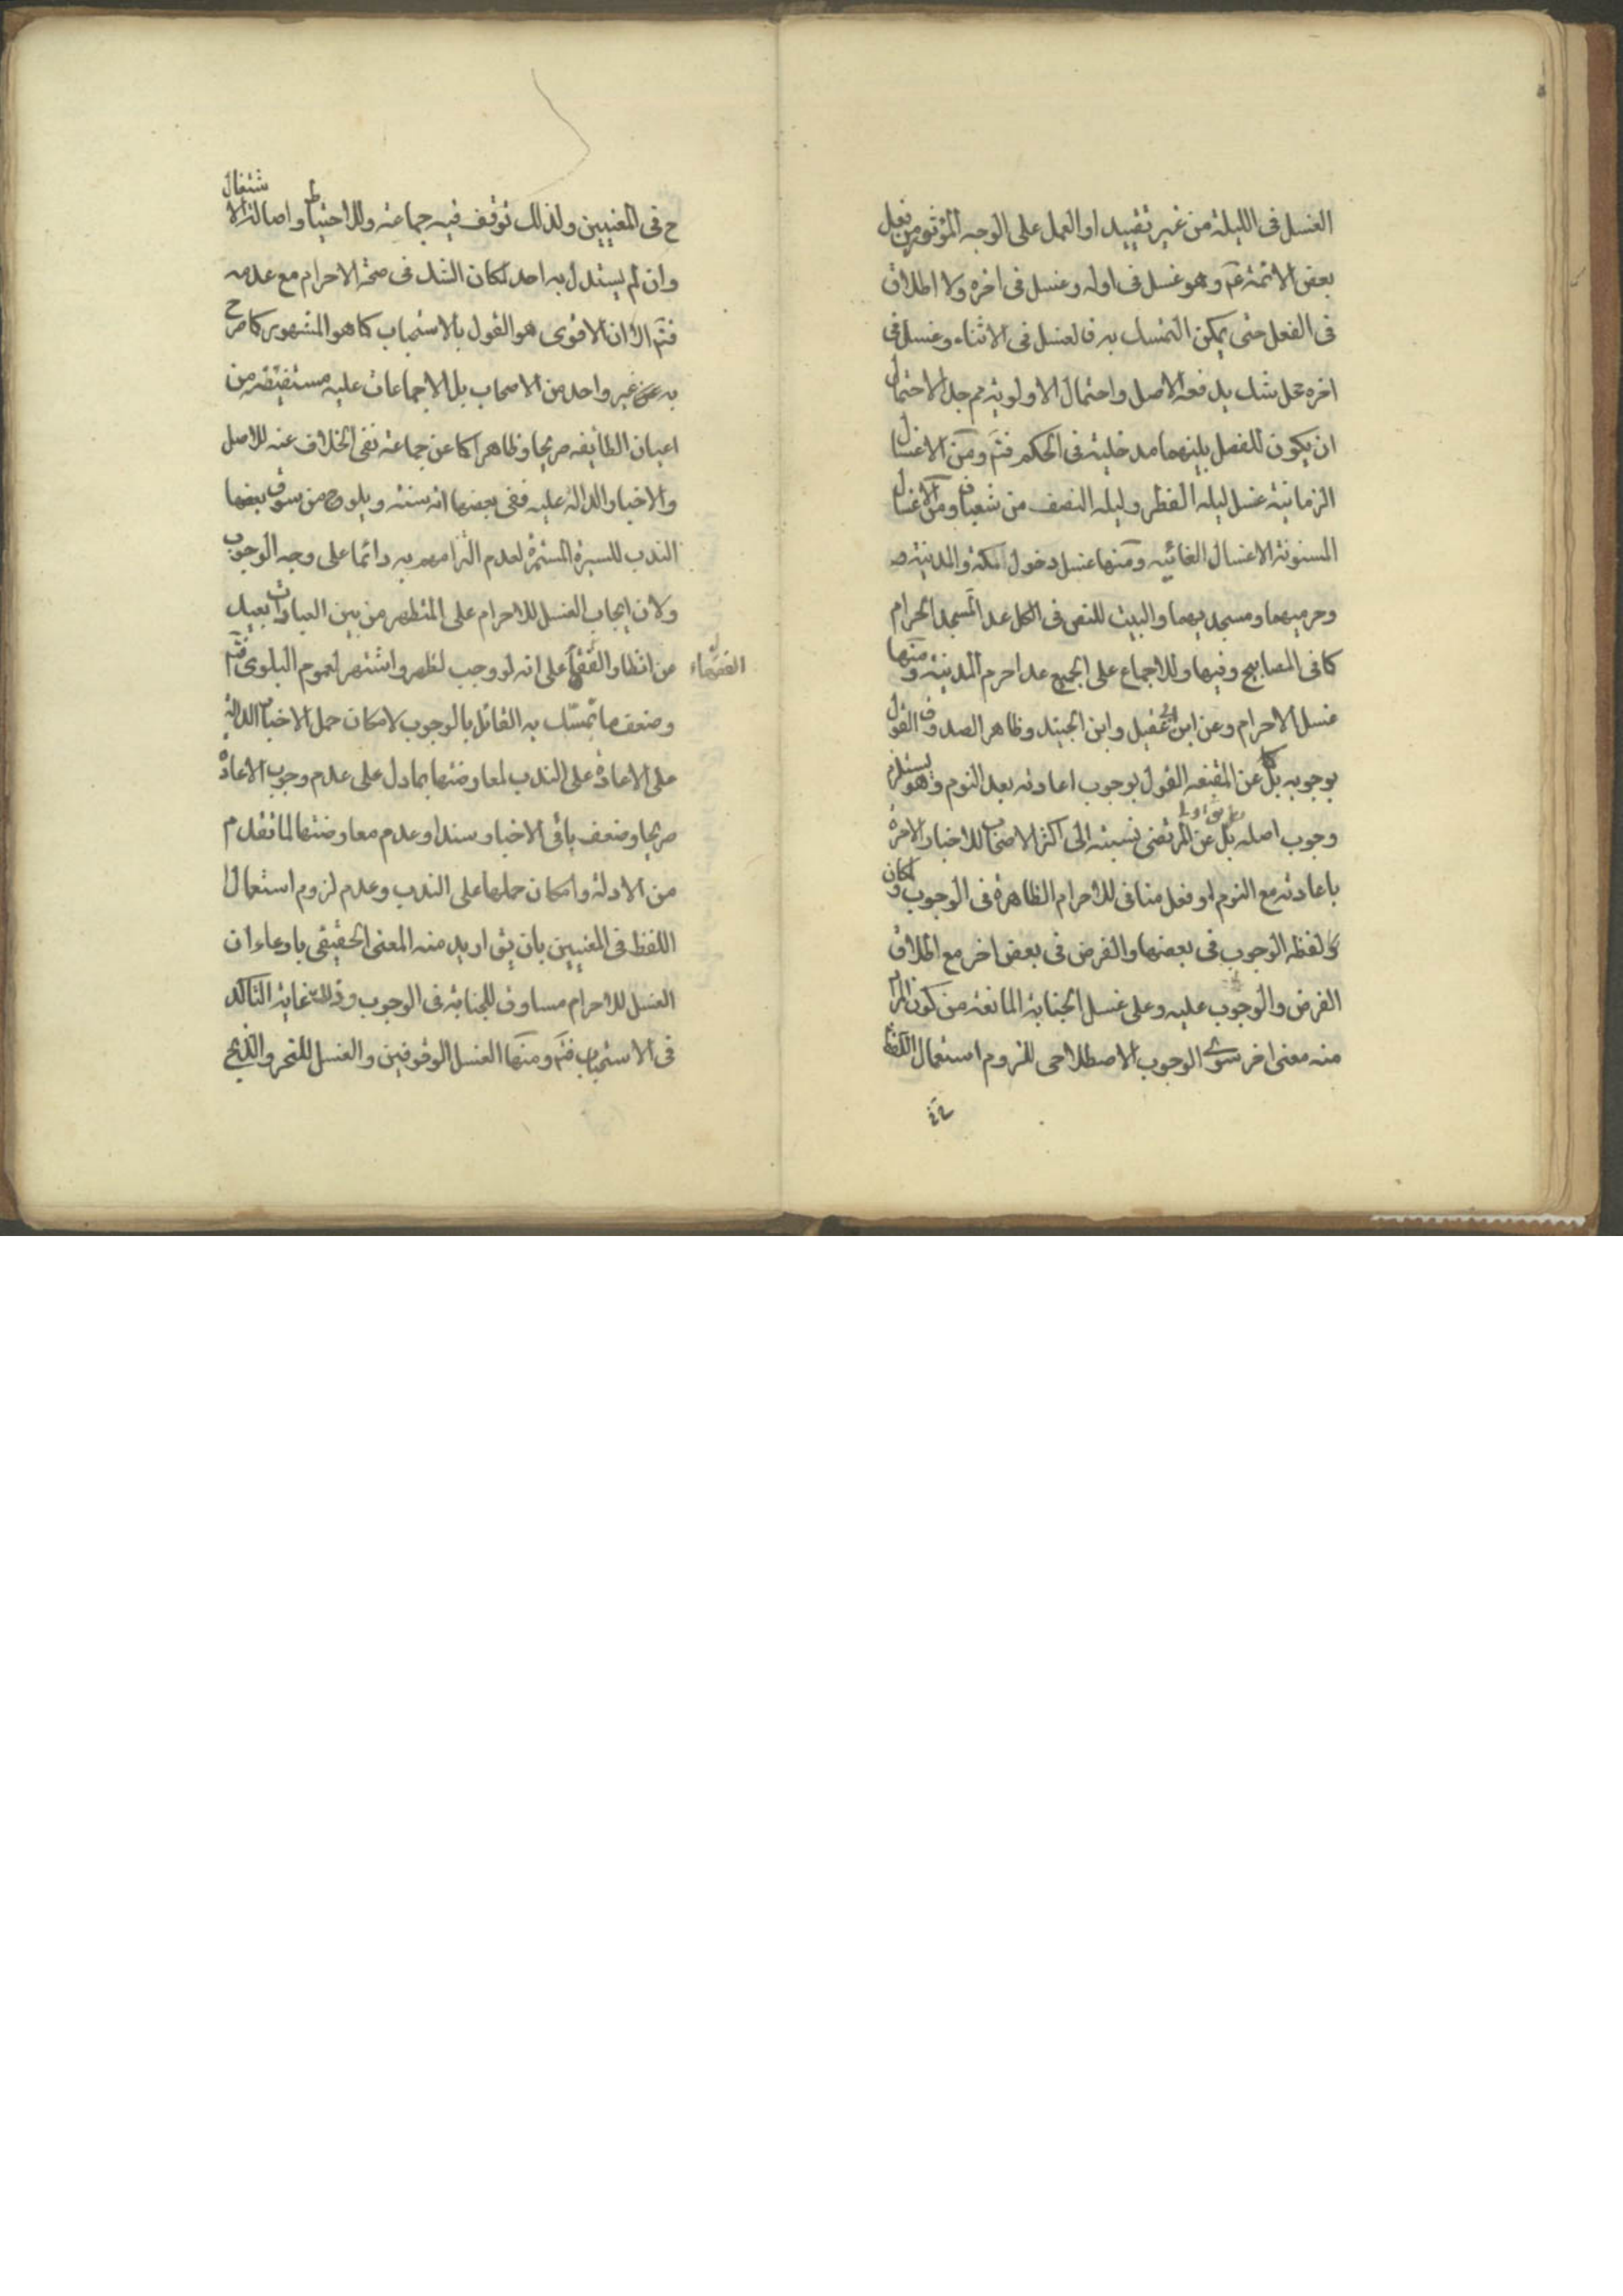 الغسل فى الليلة من غير تقييد او العمل على الوجه المؤثور من فعل
بعض الائمة عم وهو غسل فى اوله وغسل فى اخره ولا اطلاق
فى الفعل حتى يمكن التمسك به فالغسل فى الاثناء وغسل فى
اخره محل شك يدفعه الاصل واحتمال الاولوية كم جل الاحتمال
ان يكون للفصل بينهما مدخلية فى الحكم فتم ومن الاغسال
الزمانية غسل ليله الفطر وليله النصف من شعبان ومن الاغسال
المسنونة الاغسال الغائيه ومنها غسل دخول المكة والمدينة
وحرميهما ومسجديهما والبيت للنص فى الكل عدا المسجد الحرام
كما فى المصابيح وفيها وللاجماع على الجميع عدا حرم المدينة ومنها
غسل الاحرام وعن ابن ابى عقيل وابن الجنيد وظاهر الصدوق القول
بوجوبه بل عن المقنعه القول بوجوب اعادته بعد النوم وهو يستلزم
وجوب اصله بل عن المرتضى نسبته الى اكثر الاصحاب للاخبار الامرة
باعادته مع النوم او فعل منافى للاحرام الظاهرة فى الوجوب ولمكان
لفظه الوجوب فى بعضها والفرض فى بعض اخر مع اطلاق
الفرض والوجوب عليه وعلى غسل الجنابة المانعة من كون المراد
منه معنى اخر سوى الوجوب الاصطلاحى للزوم استعمال اللفظ
ح فى المغنيين ولذلك توقف فيه جماعة وللاحتياط واصالة الاشتغال
وان لم يستدل به احد لكان الشك فى صحة الاحرام مع عدمه
فتم الا ان الاقوى هو القول بالاستحباب كما هو المشهور كما صرح
به عن غير واحد من الاصحاب بل الاجماعات عليه مستفيضه من
اعيان الطائيفه صريحا وظاهرا كما عن جماعة نفى الخلاف عنه للاصل
والاخبار الدالة عليه ففى بعضها انه سنة ويلوح من سوق بعضها
الندب للسيرة المستمرة لعدم التزامهم به دائما على وجه الوجوب
ولان ايجاب الغسل للاحرام على المتطهر من بين العبادات بعيد
من انظار الفقهاء على انه لو وجب لظهر واشتهر لعموم البلوى فتم
الفقهاء
وضعف ما تمسك به القائل بالوجوب لامكان حمل الاخبار الدالة
على الاعادة على الندب لمعارضتها بما دل على عدم وجوب الاعادة
صريحا وضعف باقى الاخبار سندا وعدم معارضتها لما تقدم
من الادلة وامكان حملها على الندب وعدم لزوم استعمال
اللفظ فى المغنيين بان يق اريد منه المعنى الحقيقى بادعاء ان
الغسل للاحرام مساوق للجنابة فى الوجوب وذلك غاية التاكد
فى الاستحباب فتم ومنها الغسل الوقوفين والغسل للنحر والذبح